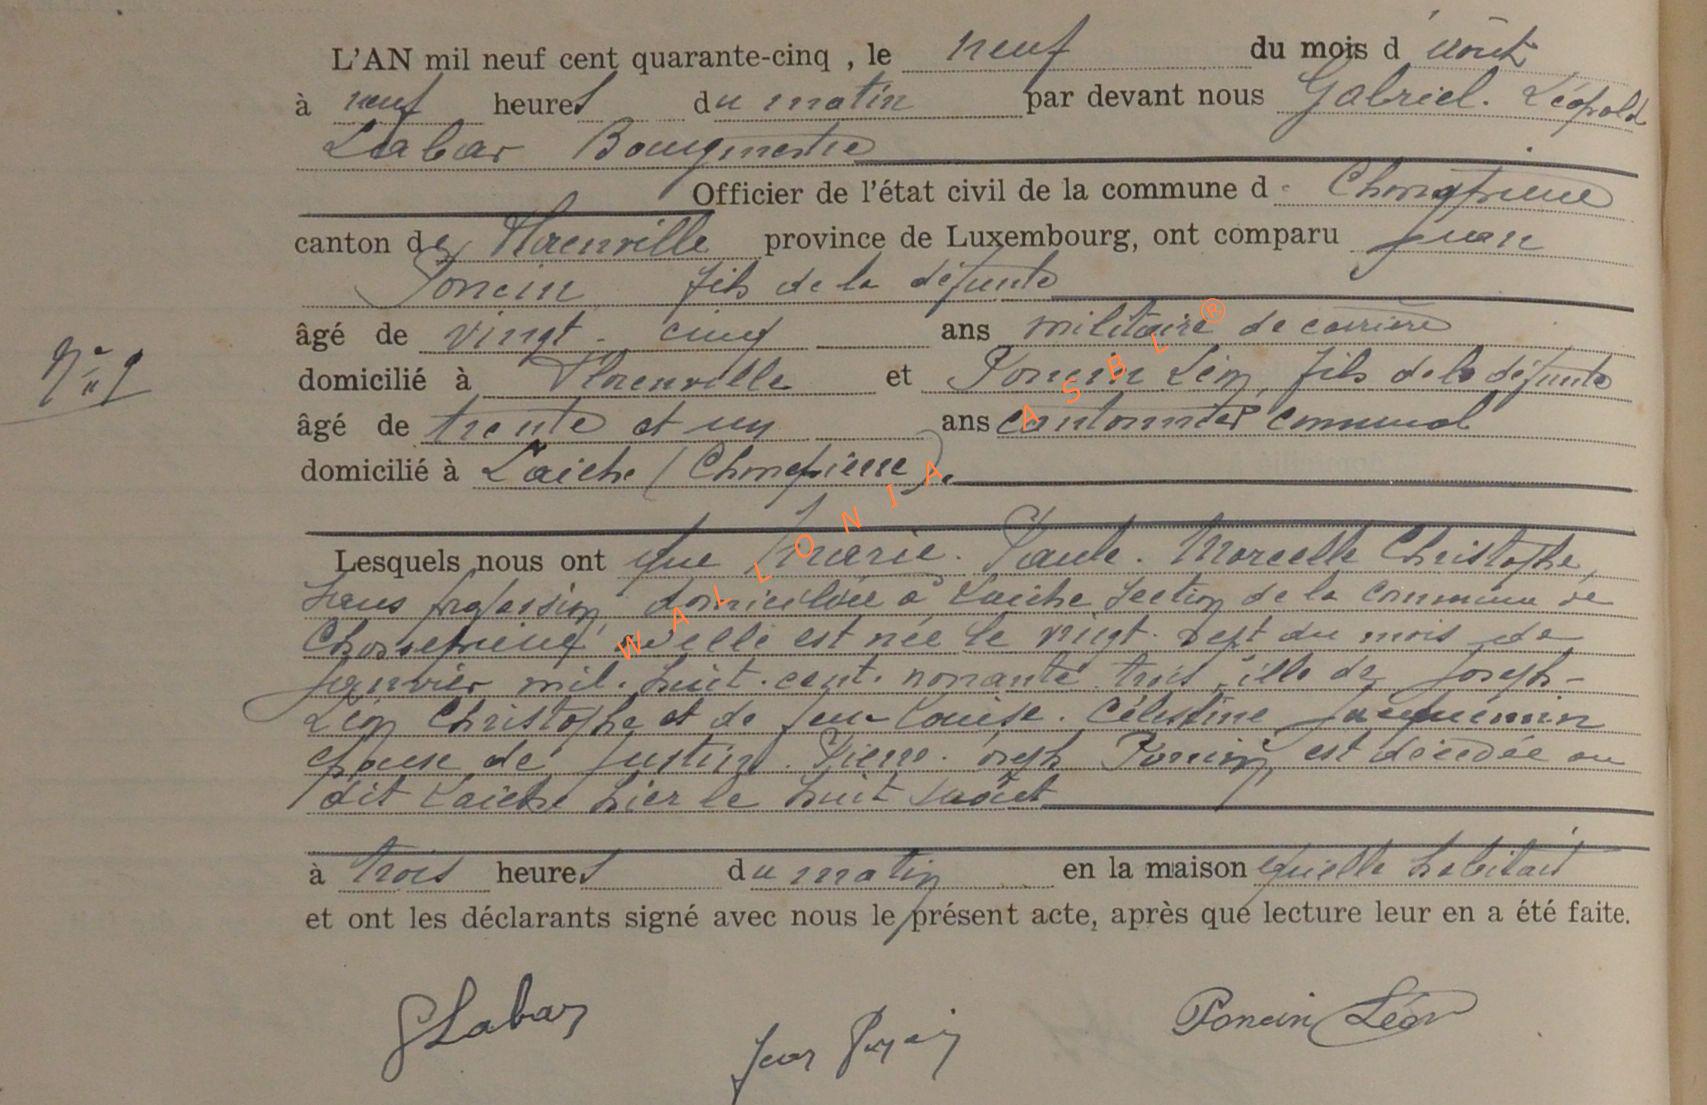 L'AN mil neuf cent quarante-cinq , le neuf du mois d'août
à neuf heures du matin par devant nous Gabriel. Léopold
Labar Bourgmestre
Officier de l'état civil de la commune de Chassepierre
canton de Florenville province de Luxembourg, ont comparu Jean
Poncin fils de la défunte
âgé de vingt-cinq ans militaire de carrière
domicilié à Florenville et Poncin Léon, fils de la défunte
N° 9
âgé de trente et un ans cantonnier communal
domicilié à Laiche (Chassepierre).
Lesquels nous ont que Marie. Paule. Marcelle Christophe,
sans profession, domiciliée à Laiche section de la commune de
Chassepierre où elle est née le vingt-sept du mois de
janvier mil. huit. cent. nonante trois fille de Joseph-
Léon Christophe et de feue Louise. Célestine Jacquemin
épouse de Justin. Pierre. Joseph Poncin, est décédée au
dit Laiche hier le huit août
à trois heures du matin en la maison qu'elle habitait
et ont les déclarants signé avec nous le présent acte, après que lecture leur en a été faite.
GLabar
Jean Poncin
Poncin Léon
WALLONIA ASBL ®